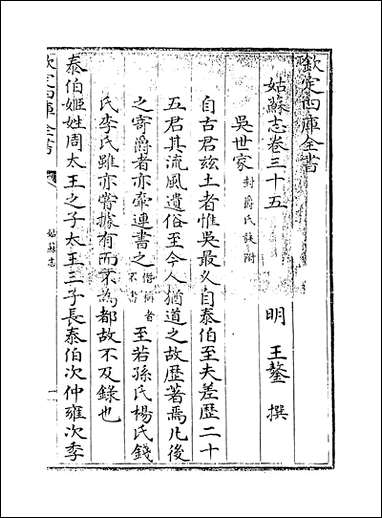 欽定四庫全書
姑蘇志卷三十五
明 王鏊 撰
吳世家 封爵氏族附
自古君兹土者惟吳最乆自泰伯至夫差歴二十
五君其流風遺俗至今人猶道之故歴著焉凡後
之寄爵者亦牽連書之 僭僞者不書 至若孫氏楊氏錢
氏李氏雖亦嘗據有而不為都故不及錄也
泰伯姬姓周太王之子太王三子長泰伯次仲雍次季
欽定四庫全書
姑蘇志
一